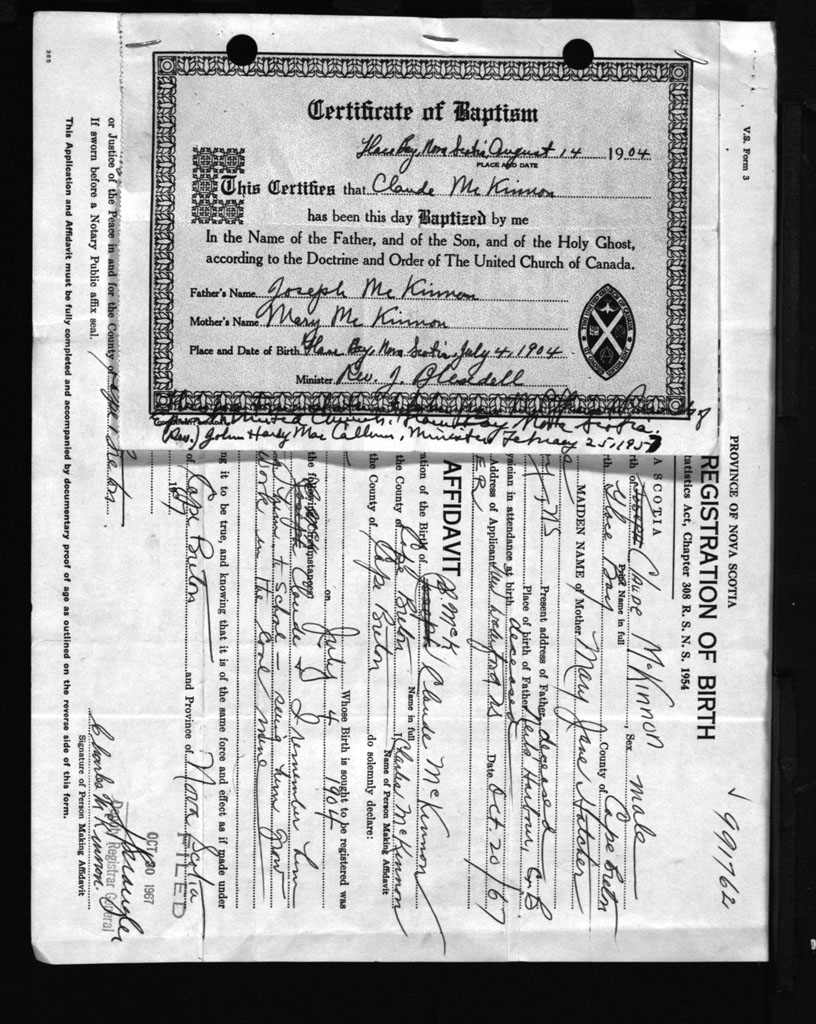 Certificate of Baptism
Glace Bay, Nova Scotia, August 14 1904
PLACE AND DATE
This Certifies that Claude McKinnon
has been this day Baptized by me
In the Name of the Father, and of the Son, and of the Holy Ghost,
according to the Doctrine and Order of The United Church of Canada.
Father's Name Joseph McKinnon
Mother's Name Mary McKinnon
Place and Date of Birth Glace Bay, Nova Scotia, July 4, 1904
Minister Rev. J.
United Church, Glace Bay, Nova Scotia.
(Rev.) John Hardy Mac Calhum, Minister, February 25, 1957
V.S. Form 3
991762
PROVINCE OF NOVA SCOTIA
REGISTRATION OF BIRTH
tatistics Act, Chapter 308 R. S. N. S. 1954
A SCOTIA
rth of Joseph Claude McKinnon, Sex male
Print Name in full
rth Glace Bay County of Cape Breton
MAIDEN NAME of Mother Mary Jane Hatcher
y, NS Present address of Father deceased
Place of birth of Father Harbour, C.B.
ysician in attendance at birth deceased
Address of Applicant New Waterford NS Date Oct. 20/67
E.R.
AFFIDAVIT
J McK
ation of the Birth of Joseph Claude McKinnon
Name in full
the County of Cape Breton I Charles McKinnon
Name of Person Making Affidavit
the County of Cape Breton do solemnly declare:
Whose Birth is sought to be registered was
on July 4 1904
the following circumstances
Joseph Claude & I remember him
going to school - seeing him grow
work in the coal mine
ng it to be true, and knowing that it is of the same force and effect as if made under
of Cape Breton and Province of Nova Scotia
FILED
OCT 30 1967
Deputy Registrar General
or Justice of the Peace in and for the County of Cape Breton
If sworn before a Notary Public affix seal.
Charles McKinnon
Signature of Person Making Affidavit
This Application and Affidavit must be fully completed and accompanied by documentary proof of age as outlined on the reverse side of this form.